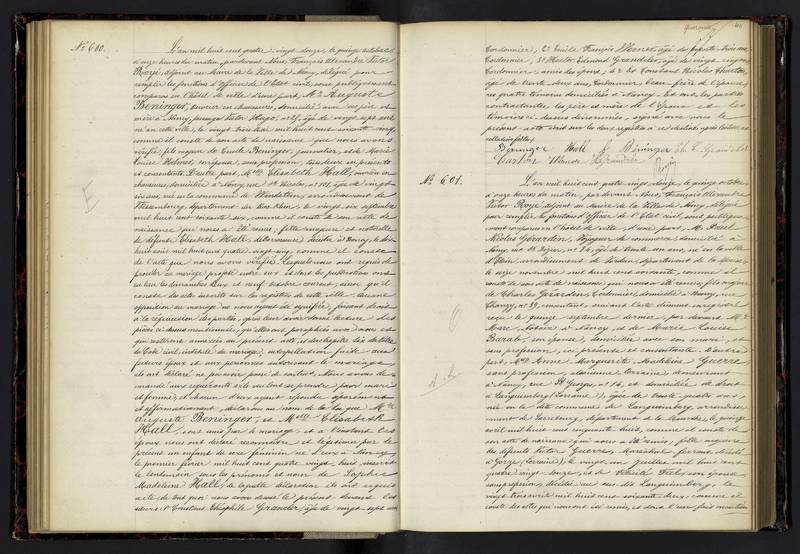 N° 600.
L'an mil huit cent quatre-vingt-douze, le quinze octobre
d'onze heures du matin, par devant Nous, François Alexandre Victor
Royé, adjoint au Maire de la Ville de Nancy, délégué pour
remplir les fonctions d'Officier de l'Etat civil, sont publiquement
comparus en l'hôtel de ville d'une part, Mr Auguste
Beninger, ouvrier en chaussures, domicilié avec ses père et
mère à Nancy, passage Victor Hugo, âgé de vingt sept ans
né en cette ville, le vingt mil huit cent soixante cinq,
comme il conste de son acte de naissance que nous avons
vérifié; fils majeur de Emile Beninger, journalier, et de Marie
Louise son épouse, sans profession, tous deux ici présents
et consentants. D'autre part, Melle Elisabeth Hall, ouvrière en
chaussures, domiciliée à Nancy, rue St Nicolas, âgée de vingt
six ans, née en la commune de arrondissement de
Wissembourg, département du Bas-Rhin le vingt six septembre
mil huit cent soixante six, comme il conste de son acte de
naissance qui nous a été remis; fille majeure et naturelle
de défunte Elisabeth Hall, décédée à Nancy, le
mil huit cent quatre vingt comme il conste
de l'acte que nous avons vérifié. Lesquels nous ont requis de
procéder au mariage projeté entre eux et dont les publications ont
eu lieu les dimanches deux et neuf octobre courant, ainsi qu'il
conste des actes inscrits sur les registres de cette ville. Aucune
opposition au mariage ne nous ayant été signifiée, faisant droit
à la réquisition des parties, après leur avoir donné lecture des
pièces ci-dessus mentionnées, qu'elles ont paraphées avec nous et
qui resteront annexées au présent acte, et du chapitre six du titre
du Code civil, intitulé du mariage, interpellation faite aux
futurs époux et aux personnes autorisant le mariage
ils ont déclaré ne pas avoir passé de contrat. Nous avons de-
mandé aux requérants s'ils veulent se prendre pour mari
et femme, et chacun d'eux ayant répondu séparément
et affirmativement, déclarons au nom de la Loi que Mr
Auguste Beninger, et Melle Elisabeth
Hall, sont unis par le mariage, et à l'instant les
époux nous ont déclaré reconnaître et légitimer par le
présent un enfant de sexe féminin né d'eux à Nancy
le premier février mil huit cent quatre vingt huit inscrit
le lendemain sous les prénoms et nom de Sophie
Madeleine Hall, de laquelle déclaration ils ont requis
acte, de tout quoi nous avons dressé le présent devant les
sieurs 1° Constant Théophile Grandclerc, âgé de vingt sept ans
E
Cordonnier, 2° Emile François Honoré, âgé de trente trois ans
Cordonnier, 3° Hector Edmond Grandclerc, âgé de vingt cinq ans
Cordonnier, amis des époux, 4° Et Constant Nicolas Charton,
âgé de trente deux ans, Cordonnier, beau-frère de l'épouse
les quatre témoins domiciliés à Nancy. Et ont, les parties
contractantes, les père et mère de l'époux et les
témoins ci-dessus dénommés, signé avec nous le
présent acte écrit sur les deux registres à ce destinés après lecture et
collation faites.
Beninger Hall E. Béninger
Royé
N° 601.
L'an mil huit cent quatre vingt douze, le quinze octobre
à onze heures du matin, par devant Nous, François Alexandre
Victor Royé adjoint au Maire de la Ville de Nancy, délégué
pour remplir les fonctions d'Officier de l'Etat civil, sont publique-
ment comparus en l'hôtel de ville, d'une part, M. Paul
Nicolas Gérardin, Voyageur de commerce, domicilié à
Nancy, rue St Dizier, âgé de trente deux ans, né en la ville
d'Etain, arrondissement de Verdun, département de la Meuse,
le seize novembre mil huit cent soixante, comme il
conste de son acte de naissance qui nous a été remis, fils majeur
de Charles Gérardin, Cordonnier, domicilié à Nancy, rue
consentant, suivant l'acte
reçu le quinze septembre dernier, par devant Me
Marc, Notaire à Nancy, et de Marie Louise
Barab, son épouse, domiciliée avec son mari, et
sans profession, ici présente et consentante. D'autre
part, Melle Anne Marguerite Madeleine Guerre
sans profession, alsacienne Lorraine, demeurant
à Nancy, rue St Georges, n° 16, et domiciliée de droit
à Languimberg (Lorraine), âgée de trente-quatre ans,
née en la dite commune de Languimberg, arrondisse-
ment de Sarrebourg, département de la Meurthe, le quinze
avril mil huit cent cinquante huit, comme il conste de
son acte de naissance qui nous a été remis, fille majeure
de défunts Victor Guerre, Maréchal ferrant, décédé
à Gorze (Lorraine), le vingt juillet mil huit cent
quatre vingt onze, et de son épouse
sans profession, décédée au sus-dit Languimberg, le
vingt trois avril mil huit cent soixante deux, comme il
conste des actes qui nous ont été remis, et dont l'un fait mention